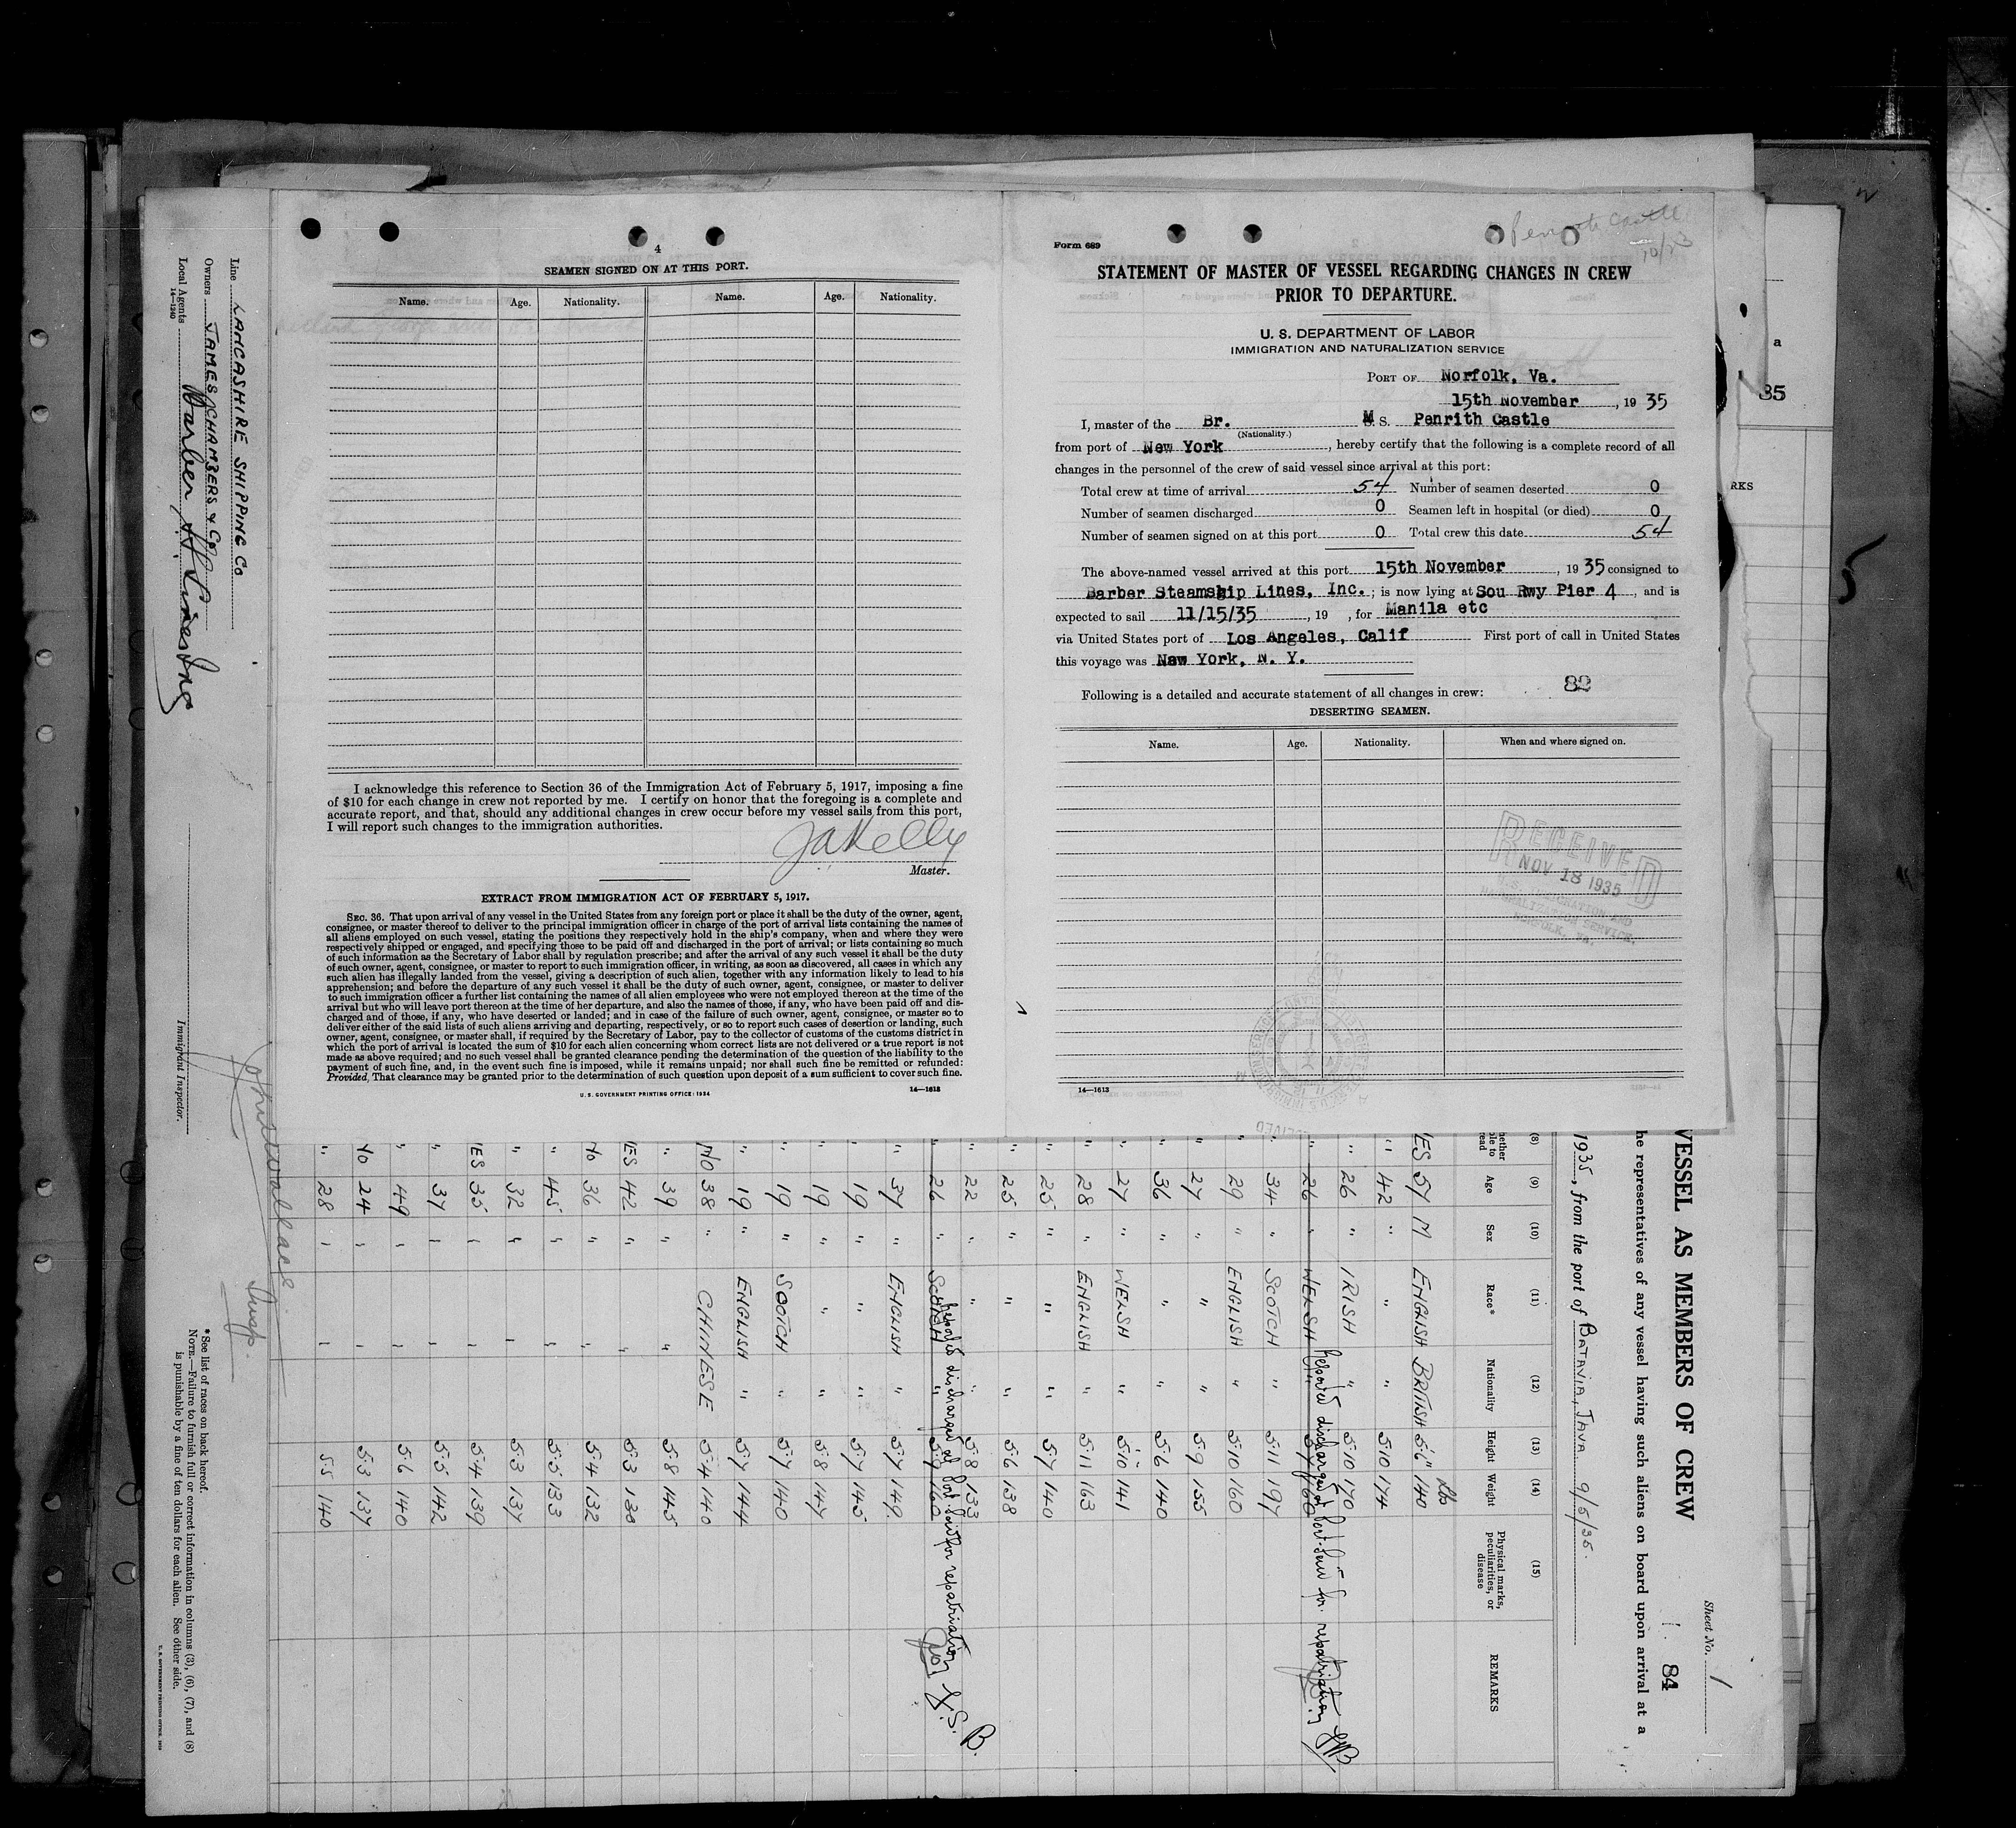 4
SEAMEN SIGNED ON AT THIS PORT.
Name. Age. Nationality. Name. Age. Nationality.
I acknowledge this reference to Section 36 of the Immigration Act of February 5, 1917, imposing a fine
of $10 for each change in crew not reported by me. I certify on honor that the foregoing is a complete and
accurate report, and that, should any additional changes in crew occur before my vessel sails from this port,
I will report such changes to the immigration authorities.
JAKelly
Master.
EXTRACT FROM IMMIGRATION ACT OF FEBRUARY 5, 1917.
SEC. 36. That upon arrival of any vessel in the United States from any foreign port or place it shall be the duty of the owner, agent,
consignee, or master thereof to deliver to the principal immigration officer in charge of the port of arrival lists containing the names of
all aliens employed on such vessel, stating the positions they respectively hold in the ship's company, when and where they were
respectively shipped or engaged, and specifying those to be paid off and discharged in the port of arrival; or lists containing so much
of such information as the Secretary of Labor shall by regulation prescribe; and after the arrival of any such vessel it shall be the duty
of such owner, agent, consignee, or master to report to such immigration officer, in writing, as soon as discovered, all cases in which any
such alien has illegally landed from the vessel, giving a description of such alien, together with any information likely to lead to his
apprehension; and before the departure of any such vessel it shall be the duty of such owner, agent, consignee, or master to deliver
to such immigration officer a further list containing the names of all alien employees who were not employed thereon at the time of the
arrival but who will leave port thereon at the time of her departure, and also the names of those, if any, who have been paid off and dis-
charged and of those, if any, who have deserted or landed; and in case of the failure of such owner, agent, consignee, or master so to
deliver either of the said lists of such aliens arriving and departing, respectively, or so to report such cases of desertion or landing, such
owner, agent, consignee, or master shall, if required by the Secretary of Labor, pay to the collector of customs of the customs district in
which the port of arrival is located the sum of $10 for each alien concerning whom correct lists are not delivered or a true report is not
made as above required; and no such vessel shall be granted clearance pending the determination of the question of the liability to the
payment of such fine, and, in the event such fine is imposed, while it remains unpaid; nor shall such fine be remitted or refunded:
Provided, That clearance may be granted prior to the determination of such question upon deposit of a sum sufficient to cover such fine.
14—1613
U. S. GOVERNMENT PRINTING OFFICE: 1934
Penrith Castle
Form 689
STATEMENT OF MASTER OF VESSEL REGARDING CHANGES IN CREW
PRIOR TO DEPARTURE.
U. S. DEPARTMENT OF LABOR
IMMIGRATION AND NATURALIZATION SERVICE
PORT OF Norfolk, Va.
15th November, 1935
I, master of the Br. M S. Penrith Castle
(Nationality.)
from port of New York, hereby certify that the following is a complete record of all
changes in the personnel of the crew of said vessel since arrival at this port:
Total crew at time of arrival 54 Number of seamen deserted 0
Number of seamen discharged 0 Seamen left in hospital (or died) 0
Number of seamen signed on at this port 0 Total crew this date 54
The above-named vessel arrived at this port 15th November, 1935 consigned to
Barber Steamship Lines, Inc.; is now lying at Sou Rwy Pier 4, and is
expected to sail 11/15/35, 19 , for Manila etc
via United States port of Los Angeles, Calif First port of call in United States
this voyage was New York, N. Y.
Following is a detailed and accurate statement of all changes in crew:
82
DESERTING SEAMEN.
Name. Age. Nationality. When and where signed on.
RECEIVED
NOV 18 1935
U.S. IMMIGRATION AND
NATURALIZATION SERVICE,
NORFOLK, Va.
14—1613
Sheet No. 1
84
VESSEL AS MEMBERS OF CREW
he representatives of any vessel having such aliens on board upon arrival at a
1935, from the port of BATAVIA, JAVA 9/5/35.
(8) (9) (10) (11) (12) (13) (14) (15)
Age Sex Race* Nationality Height Weight Physical marks, peculiarities, or disease REMARKS
Lbs
ES 57 M ENGLISH BRITISH 5'6" 140
" 42 " " " 5-10 174
" 26 " IRISH " 5-10 170
" 26 " WELSH " 5-7 160 Reported discharged at Port Said for repatriation
" 34 " SCOTCH " 5-11 197
" 29 " ENGLISH " 5-10 160
27 " " " 5-9 155
36 " " " 5-6 140
" 27 " WELSH " 5-10 141
" 28 " ENGLISH " 5-11 163
" 25 " " " 5-7 140
" 25 " " " 5-6 138
" 22 " " " 5-8 133
" 26 " SCOTCH " 5-9 160 Reported discharged at Port Said for repatriation J.S.B.
" 37 " ENGLISH " 5-7 149
" 19 " " " 5-7 145
" 19 " " " 5-8 147
" 19 " SCOTCH " 5-7 140
" 19 " ENGLISH " 5-7 144
NO 38 " CHINESE 5-4 140
" 39 " " 5-8 145
ES 42 " " 5-3 130
NO 36 " " 5-4 132
" 45 " " 5-5 133
" 32 " " 5-3 137
ES 35 " " 5-4 139
" 37 " " 5-5 142
" 49 " " 5-6 140
NO 24 " " 5-3 137
" 28 " " 5-5 140
John Wallace
Insp.
Immigrant Inspector.
Line LANCASHIRE SHIPPING Co
Owners JAMES CHAMBERS & Co
Local Agents Barber SS Lines Inc
14—1240
*See list of races on back hereof.
NOTE.—Failure to furnish full or correct information in columns (3), (6), (7), and (8)
is punishable by a fine of ten dollars for each alien. See other side.
a
35
RKS
5